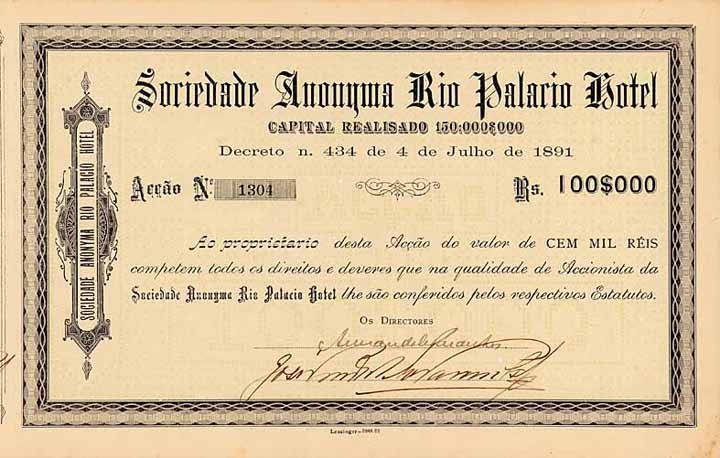 Sociedade Anonyma Rio Palacio Hotel
CAPITAL REALISADO 150:000$000
Decreto n. 434 de 4 de Julho de 1891
Acção Nº 1304
Rs. 100$000
Ao proprietario desta Acção do valor de CEM MIL RÉIS
competem todos os direitos e deveres que na qualidade de Accionista da
Sociedade Anonyma Rio Palacio Hotel lhe são conferidos pelos respectivos Estatutos.
OS DIRECTORES
SOCIEDADE ANONYMA RIO PALACIO HOTEL
Leuzinger